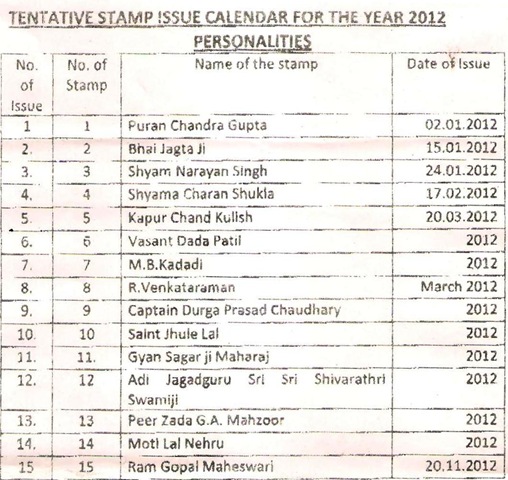 TENTATIVE STAMP ISSUE CALENDAR FOR THE YEAR 2012
PERSONALITIES
No. of Issue No. of Stamp Name of the stamp Date of Issue
1 1 Puran Chandra Gupta 02.01.2012
2. 2 Bhai Jagta Ji 15.01.2012
3. 3 Shyam Narayan Singh 24.01.2012
4. 4 Shyama Charan Shukla 17.02.2012
5. 5 Kapur Chand Kulish 20.03.2012
6. 6 Vasant Dada Patil 2012
7. 7 M.B.Kadadi 2012
8. 8 R.Venkataraman March 2012
9. 9 Captain Durga Prasad Chaudhary 2012
10. 10 Saint Jhule Lal 2012
11. 11. Gyan Sagar ji Maharaj 2012
12. 12 Adi Jagadguru Sri Sri Shivarathri 2012
Swamiji
13. 13 Peer Zada G.A. Mahzoor 2012
14. 14 Moti Lal Nehru 2012
15 15 Ram Gopal Maheswari 20.11.2012